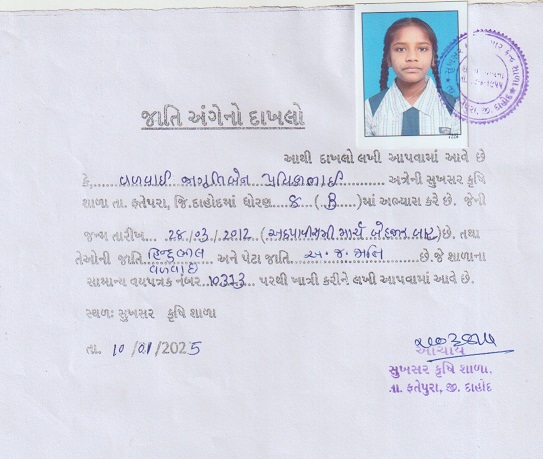 જાતિ અંગેનો દાખલો
આથી દાખલો લખી આપવામાં આવે છે
કે, વળવાઈ જાગૃતિબેન પ્રવિણભાઈ અત્રેની સુખસર કૃષિ
શાળા તા. ફતેપુરા, જિ.દાહોદમાં ધોરણ 8 (B) માં અભ્યાસ કરે છે. જેની
જન્મ તારીખ 28/03/2012 (અઠ્ઠાવીસમી માર્ચ બે હજાર બાર) છે. તથા
તેઓની જાતિ હિન્દુ ભીલ વળવાઈ અને પેટા જાતિ અ.જ.જાતિ છે.જે શાળાના
સામાન્ય વયપત્રક નંબર 10313 પરથી ખાત્રી કરીને લખી આપવામાં આવે છે.
સ્થળ: સુખસર કૃષિ શાળા
તા. 10/01/2025
આચાર્ય
સુખસર કૃષિ શાળા.
તા. ફતેપુરા, જી. દાહોદ